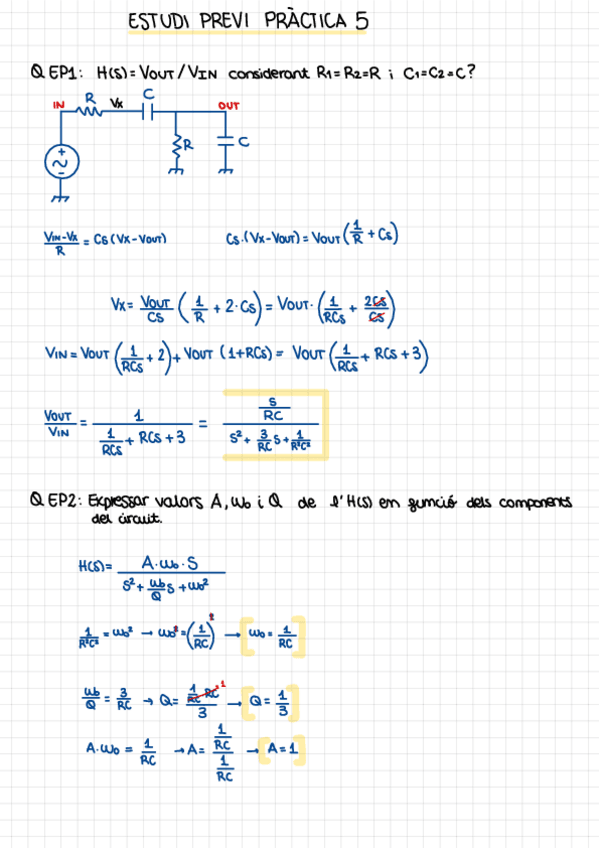 ESTUDI PREVI PRÀCTICA 5
QEP1: H(s) = VOUT / VIN considerant R1=R2=R i C1=C2=C?
IN R Vx C OUT
R C
(VIN - Vx)/R = Cs(Vx - VOUT)   Cs·(Vx - VOUT) = VOUT (1/R + Cs)
Vx = VOUT/Cs (1/R + 2·Cs) = VOUT· (1/RCs + 2Cs/Cs)
VIN = VOUT (1/RCs + 2) + VOUT (1+RCs) = VOUT (1/RCs + RCs + 3)
VOUT/VIN = 1/(1/RCs + RCs + 3) = (s/RC)/(s² + 3/RC s + 1/R²C²)
QEP2: Expressar valors A, ωo i Q de l'H(s) en funció dels components
del circuit.
H(s) = (A·ωo·S)/(s² + ωo/Q s + ωo²)
1/R²C² = ωo² → ωo² = (1/RC)² → [ωo = 1/RC]
ωo/Q = 3/RC → Q = (1/RC·RC 1)/3 → [Q = 1/3]
A·ωo = 1/RC → A = (1/RC)/(1/RC) → [A = 1]